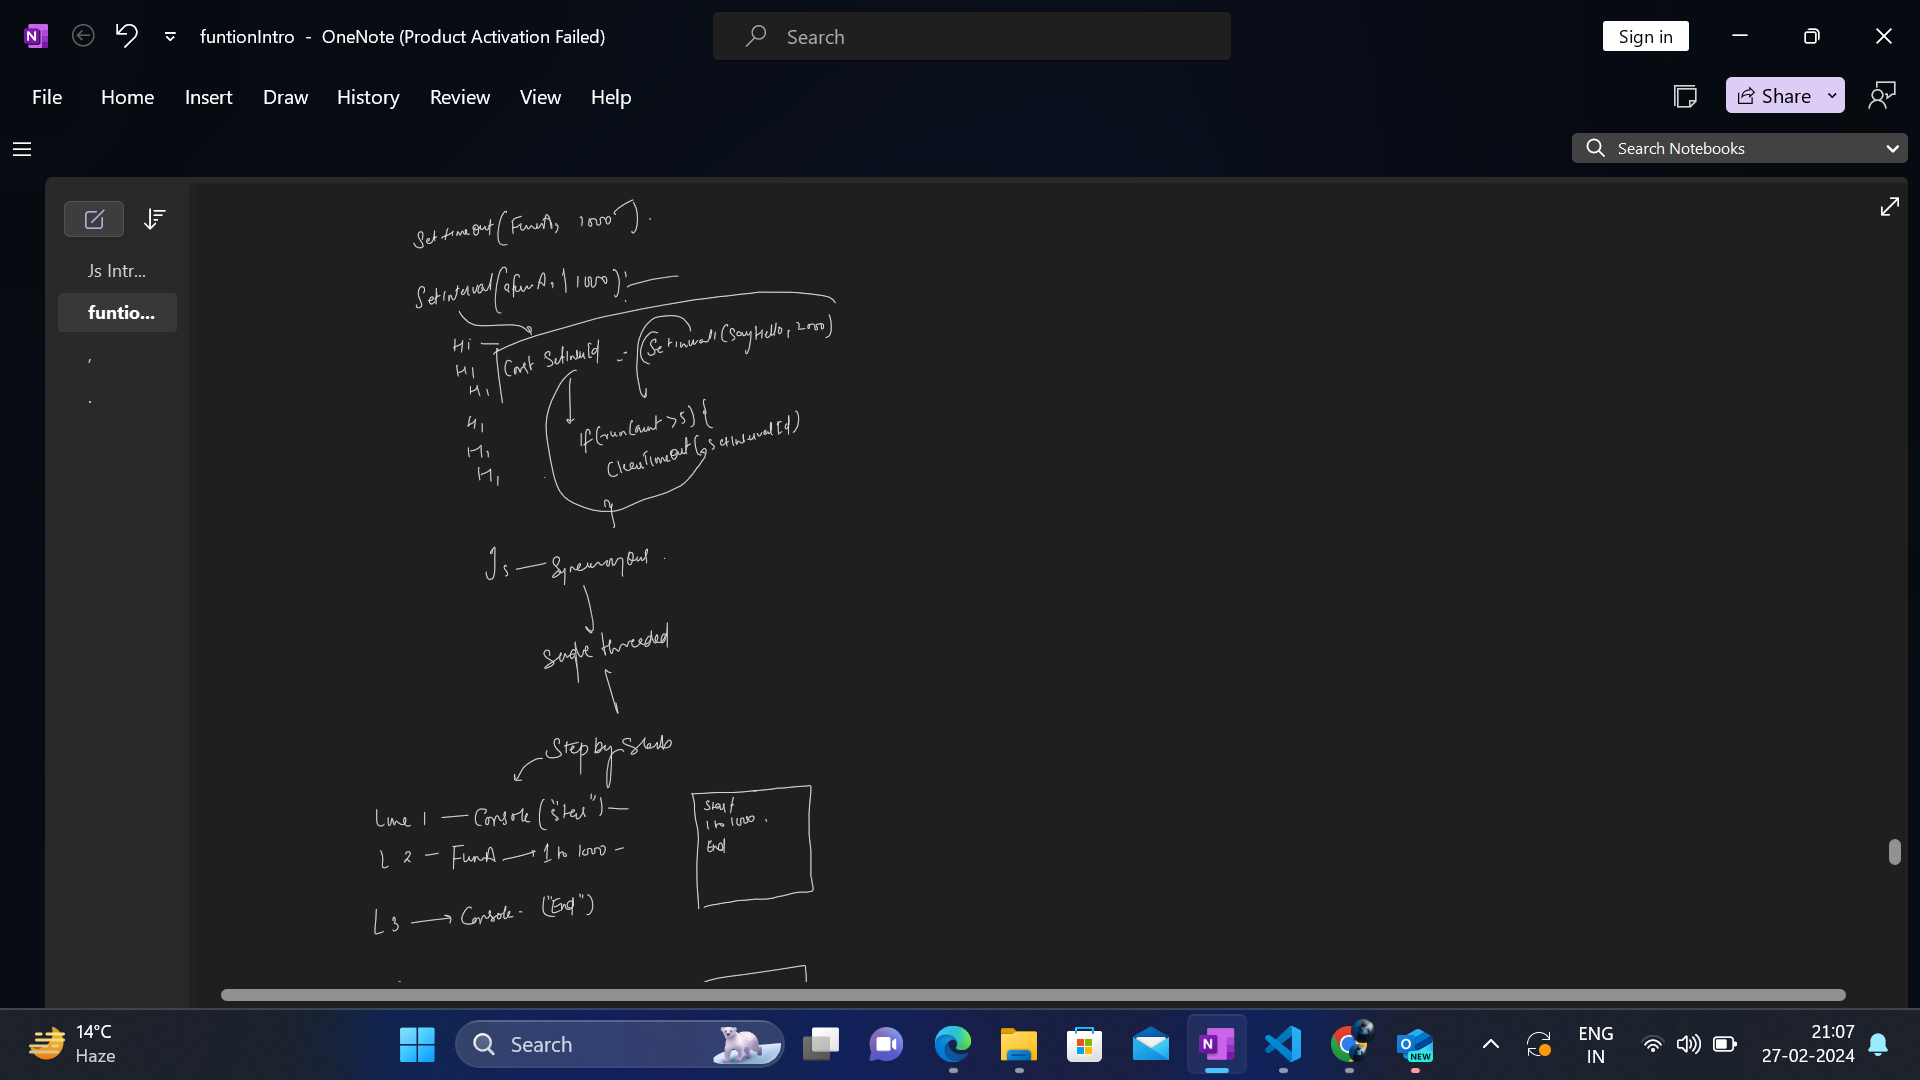 funtionIntro - OneNote (Product Activation Failed)
Search
Sign in
File Home Insert Draw History Review View Help
Share
Search Notebooks
Js Intr...
funtio...
,
.
Settimeout(FunA, 1000).
SetInterval( 1000);
Hi
Hi
Hi
Hi
Hi
Hi
Const = (Setinterval(SayHello, 2000)
If(runCount >5) {
ClearTimeout(setIntervalId)
Js
Single threaded
Step by
Line 1 — Console ("Start") —
L 2 — FunA → 1 to 1000 —
L3 → Console. ("End")
Start
1 to 1000 .
End
14°C
Haze
Search
NEW
ENG
IN
21:07
27-02-2024